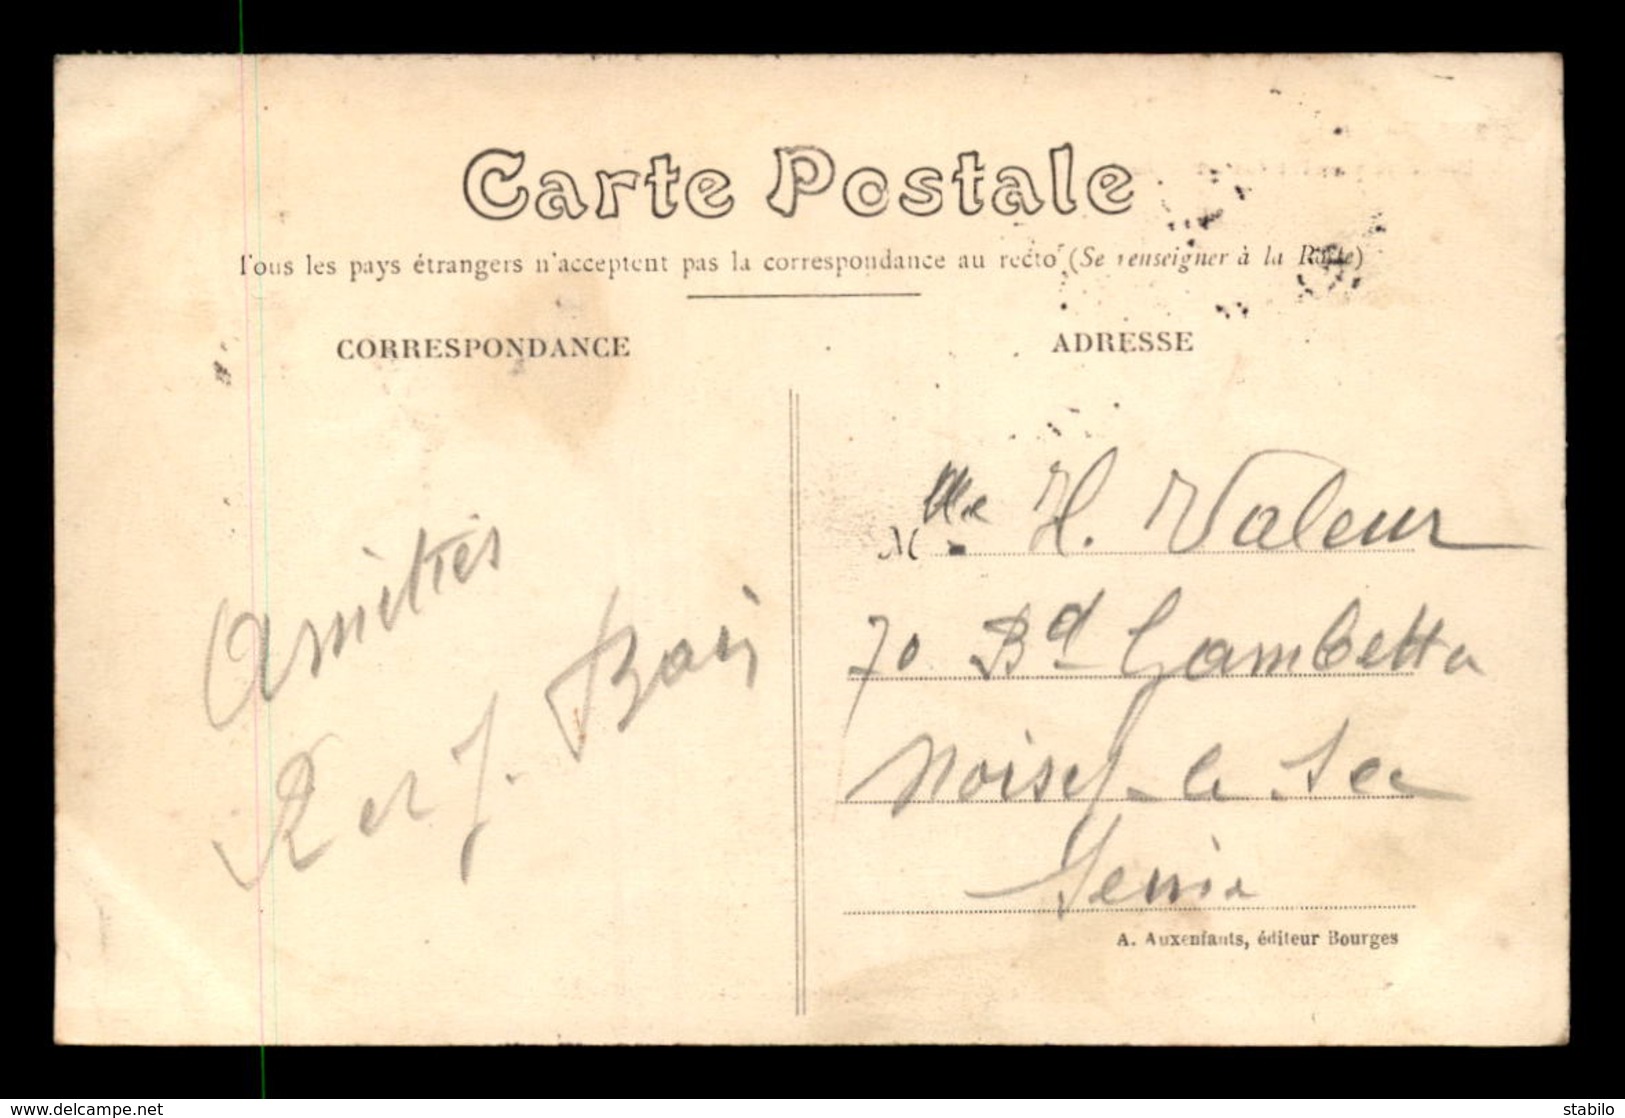 Carte Postale
Tous les pays étrangers n'acceptent pas la correspondance au recto (Se renseigner à la Poste)
CORRESPONDANCE
Amitiés
R et J. Bari
ADRESSE
Mlle H. Valeur
70 Bd Gambetta
Noisy-le-Sec
Seine
A. Auxenfants, éditeur Bourges
www.delcampe.net
stabilo